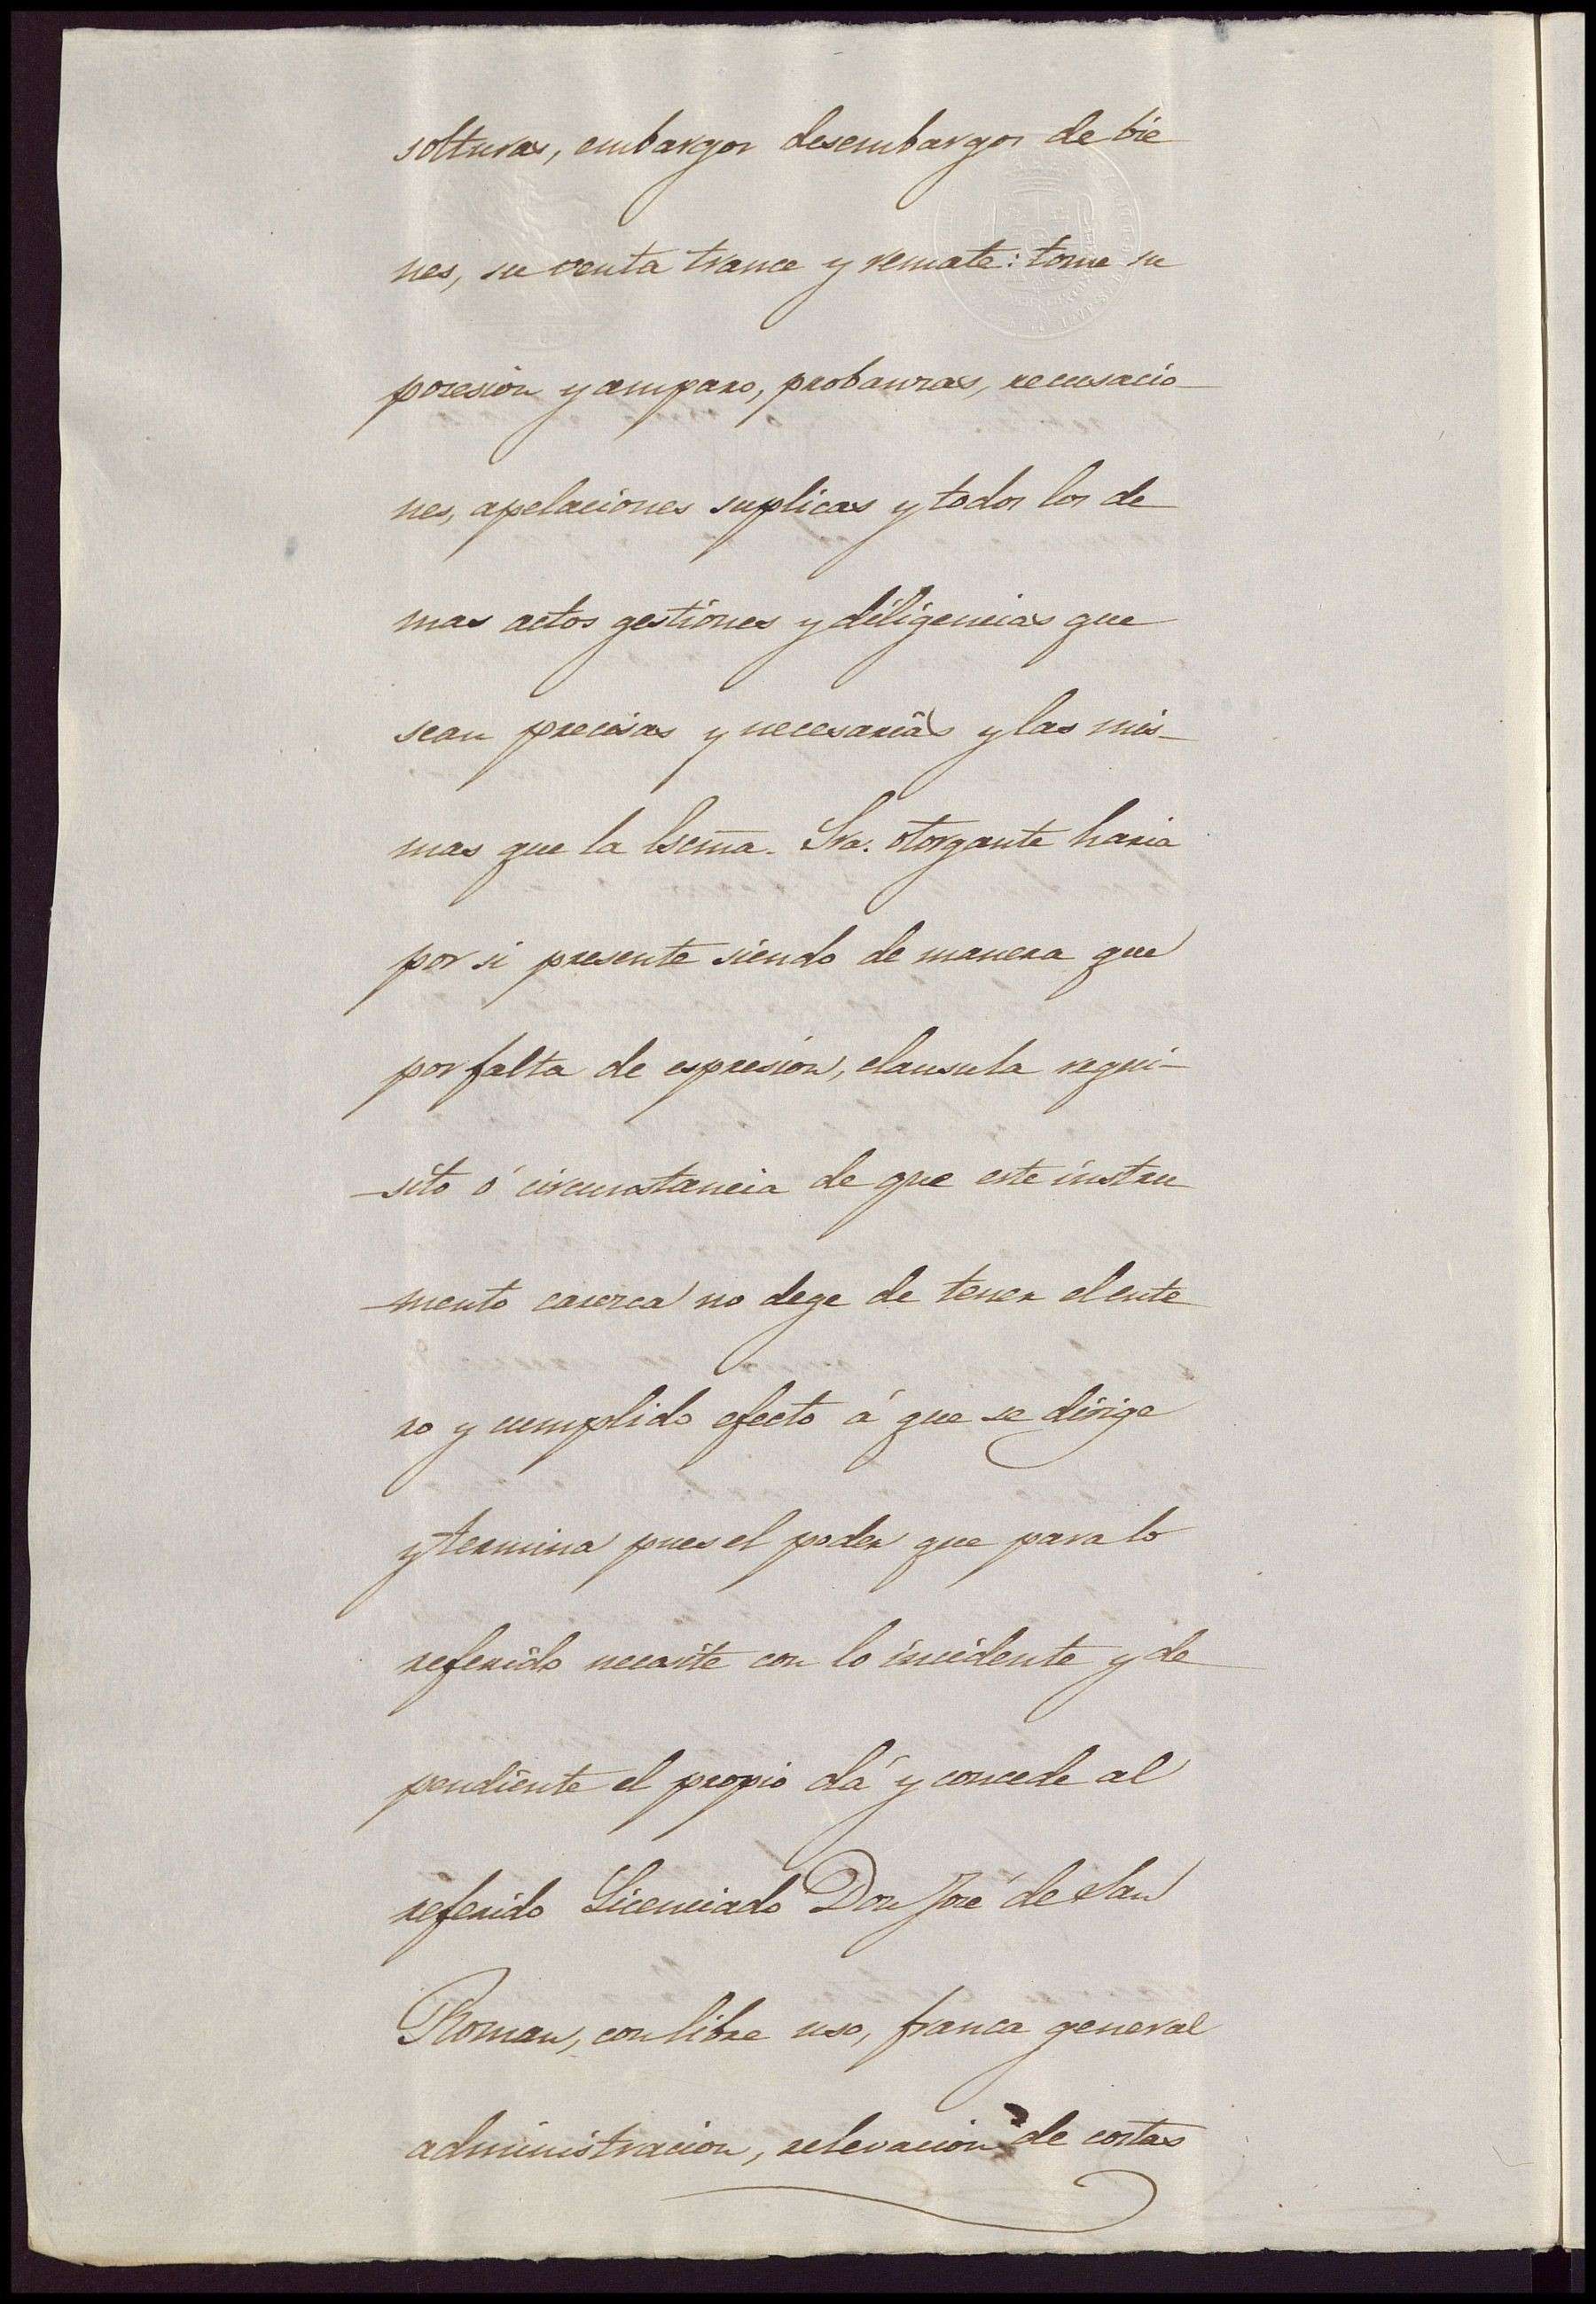 solturas, embargos desembargos de bie
nes, su venta trance y remate: tome su
posesion y amparo, probanzas, recusacio-
nes, apelaciones suplicas y todos los de
mas actos gestiones y diligencias que
sean precisas y necesarias y las mis-
mas que la Escma. Sra. otorgante haria
por si presente siendo de manera que
por falta de espresion, clausula requi-
-sito ó circunstancia de que este instru
-mento carezca no dege de tener el ente
ro y cumplido efecto á que se dirige
y termina pues el poder que para lo
referido necesite con lo incidente y de
pendiente el propio dá y concede al
referido Licenciado Don José de San
Roman, con libre uso, franca general
administracion, relevacion de costas